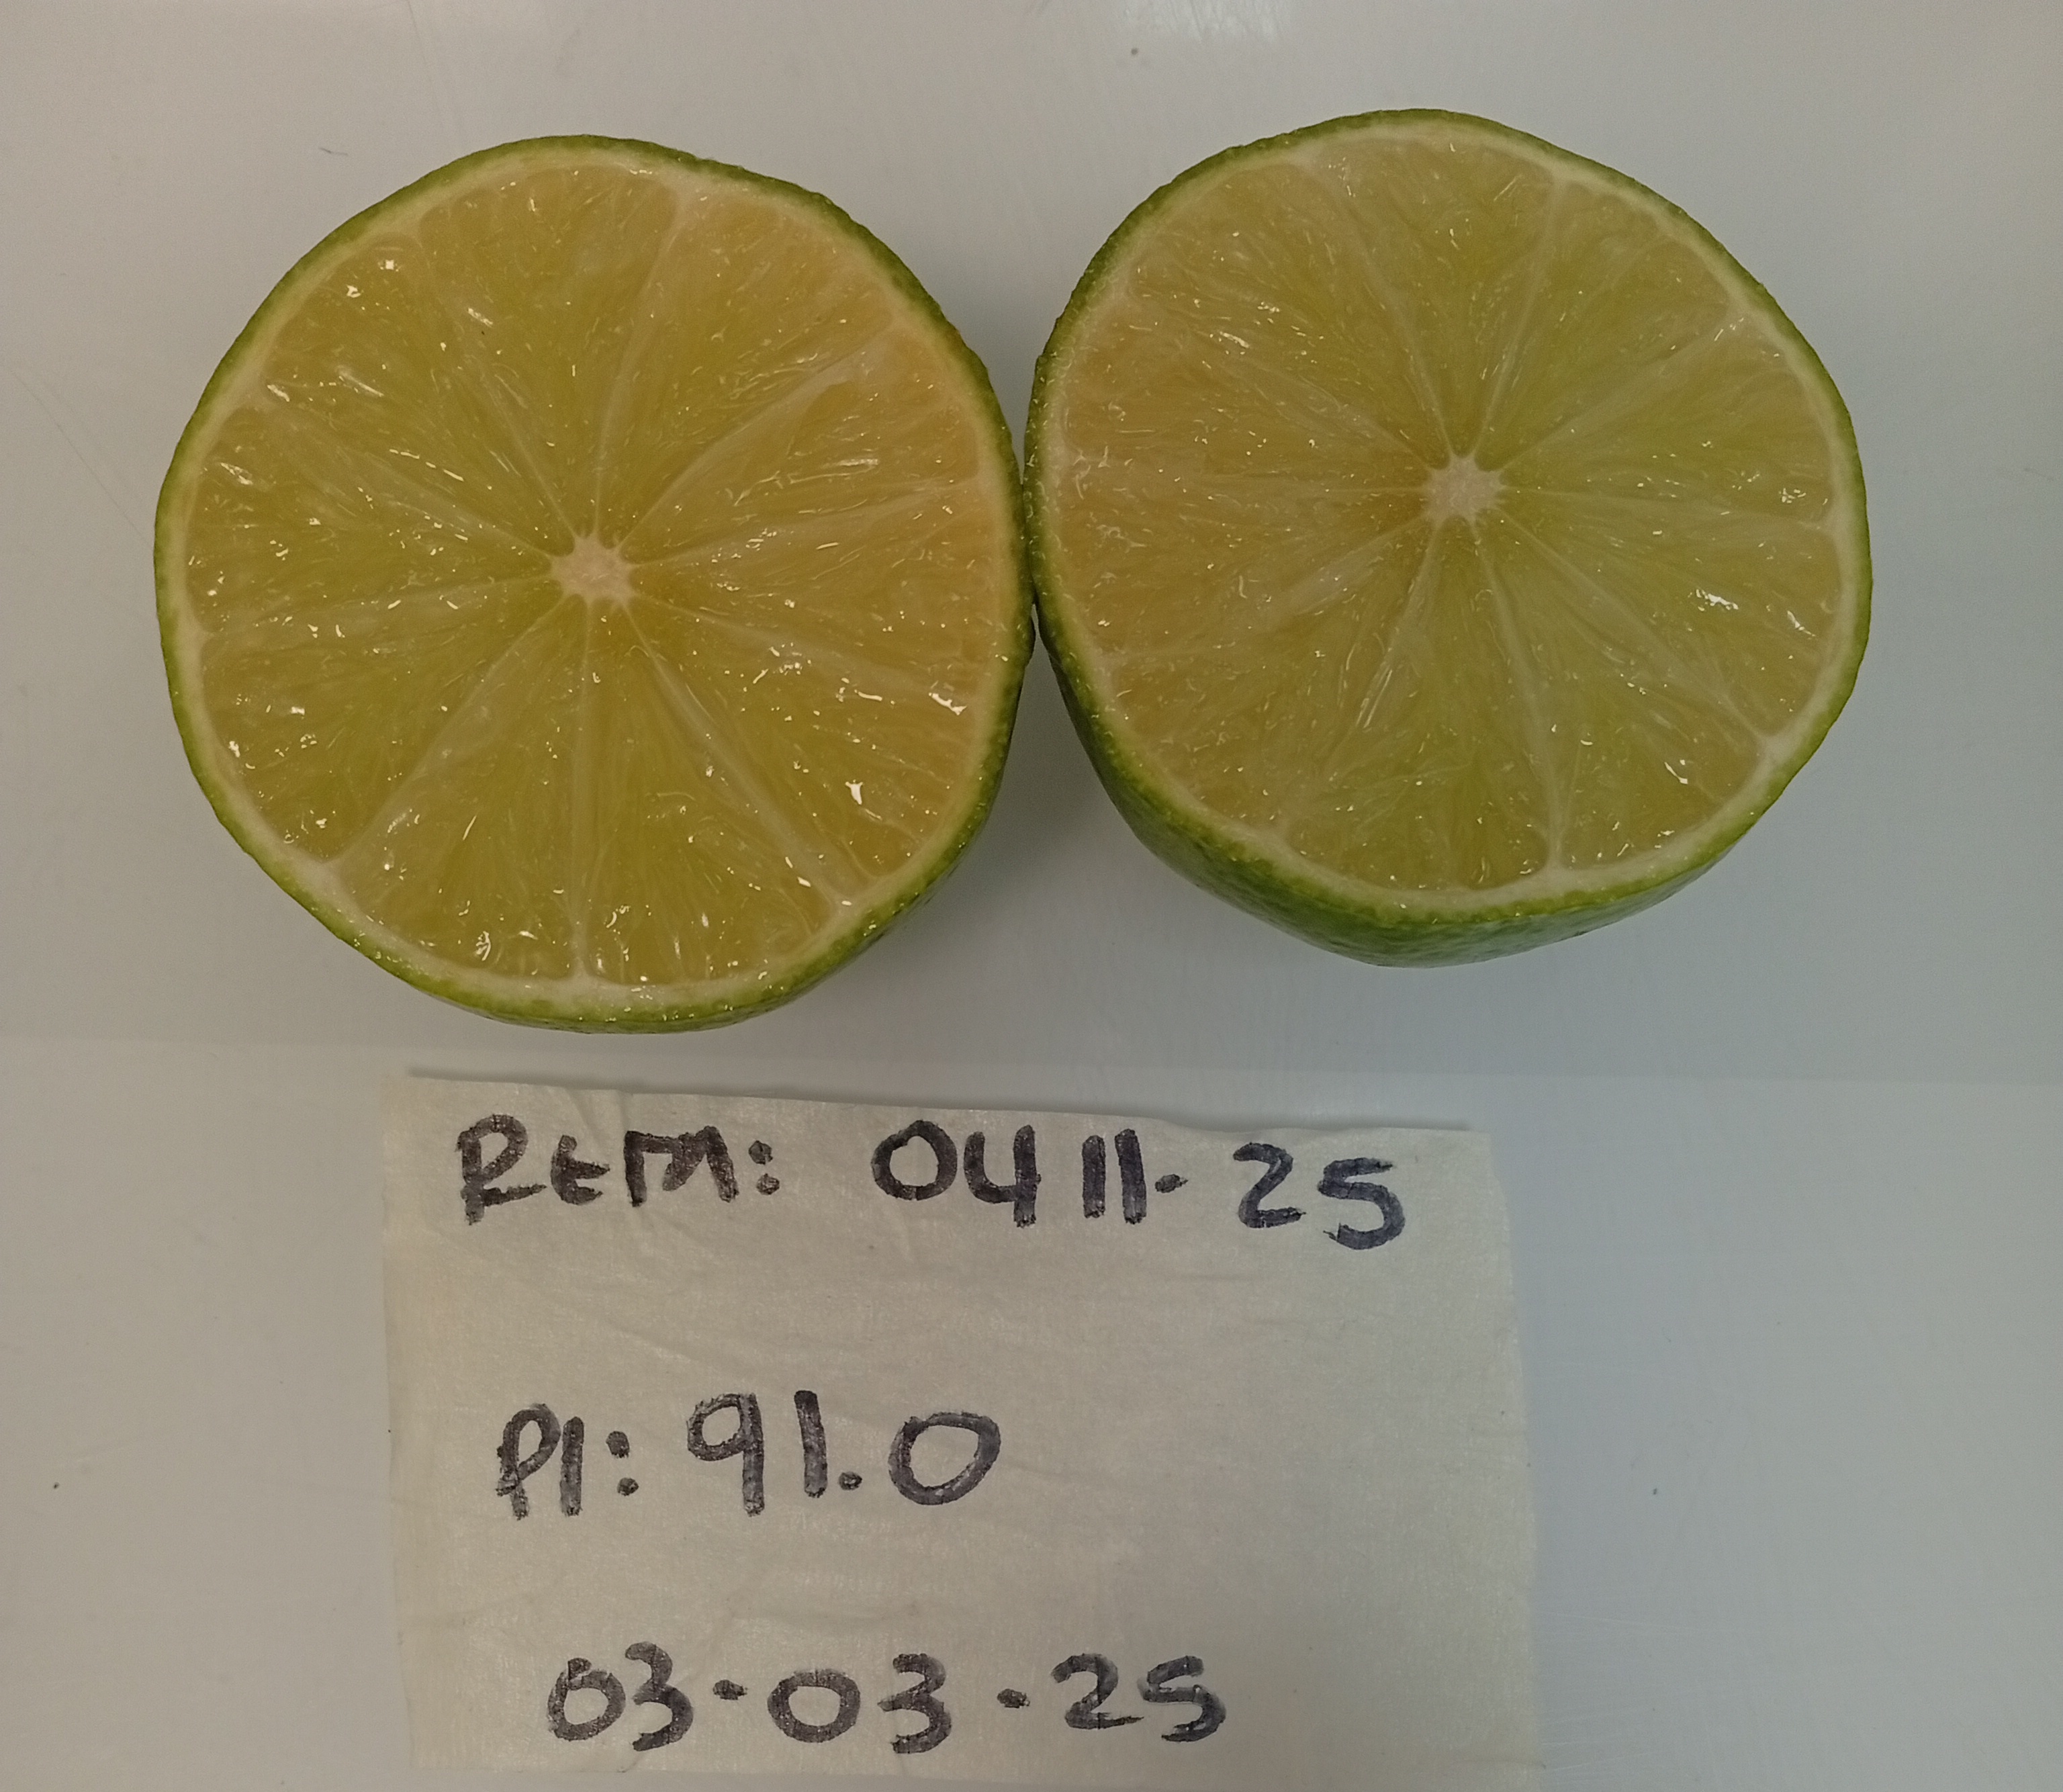 REM: 0411-25
PI: 91.0
03-03-25